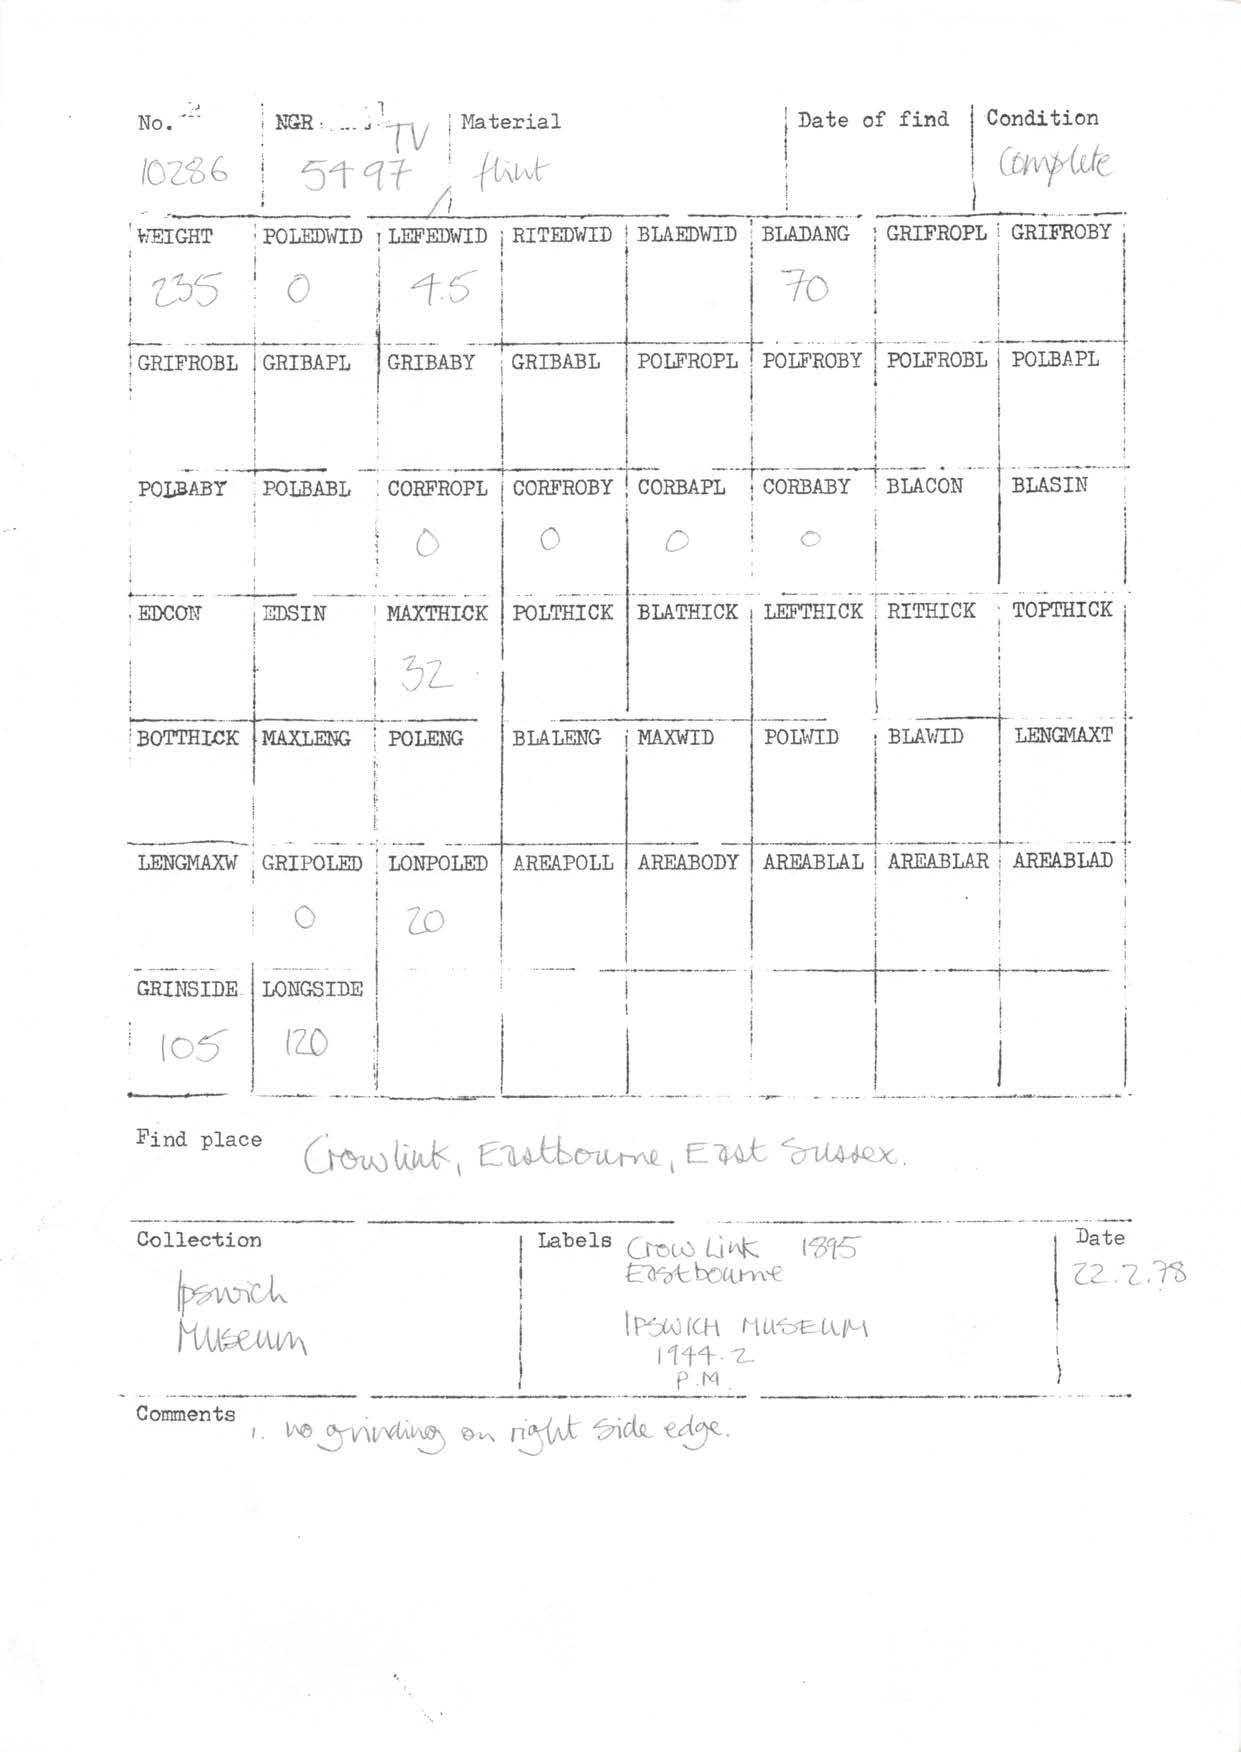 No. NGR TV Material Date of find Condition
10286 5497 flint Complete
WEIGHT POLEDWID LEFEDWID RITEDWID BLAEDWID BLADANG GRIFROPL GRIFROBY
235 0 4.5 70
GRIFROBL GRIBAPL GRIBABY GRIBABL POLFROPL POLFROBY POLFROBL POLBAPL
POLBABY POLBABL CORFROPL CORFROBY CORBAPL CORBABY BLACON BLASIN
0 0 0 0
EDCON EDSIN MAXTHICK POLTHICK BLATHICK LEFTHICK RITHICK TOPTHICK
32
BOTTHICK MAXLENG POLENG BLALENG MAXWID POLWID BLAWID LENGMAXT
LENGMAXW GRIPOLED LONPOLED AREAPOLL AREABODY AREABLAL AREABLAR AREABLAD
0 20
GRINSIDE LONGSIDE
105 120
Find place Crowlink, Eastbourne, East Sussex.
Collection Labels Crow Link 1895 Date
Eastbourne 22.2.78
Ipswich
Museum
IPSWICH MUSEUM
1944.2
P.M.
Comments 1. no grinding on right side edge.